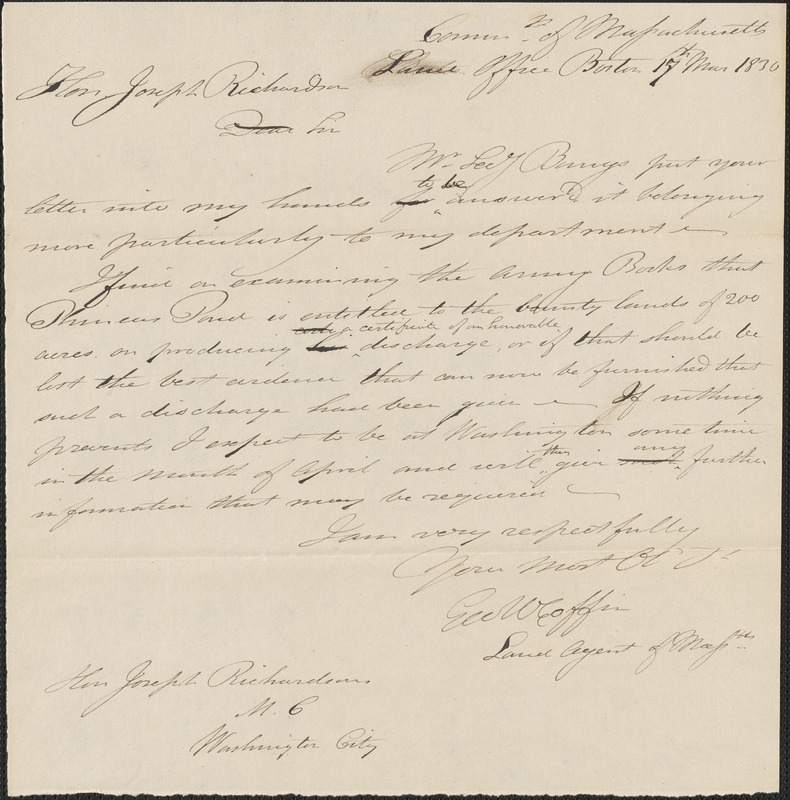 Comm.n of Massachusetts
Land Office Boston 17th Mar 1830
Hon Joseph Richardson
Dear Sir
Mr Secy Bangs put your
letter into my hands to be answerd it belonging
more particularly to my department
I find on examining the Army Books that
Phineas Pond is entitled to the bounty lands of 200
acres on producing a certificate of an honorable discharge, or if that should be
lost the best evidence that can now be furnished that
such a discharge had been given If nothing
prevents I expect to be at Washington some time
in the month of April and will then give any further
information that may be required
I am very respectfully
Your Most Ob St
Geo W Coffin
Land Agent of Masstts
Hon Joseph Richardson
M. C
Washington City